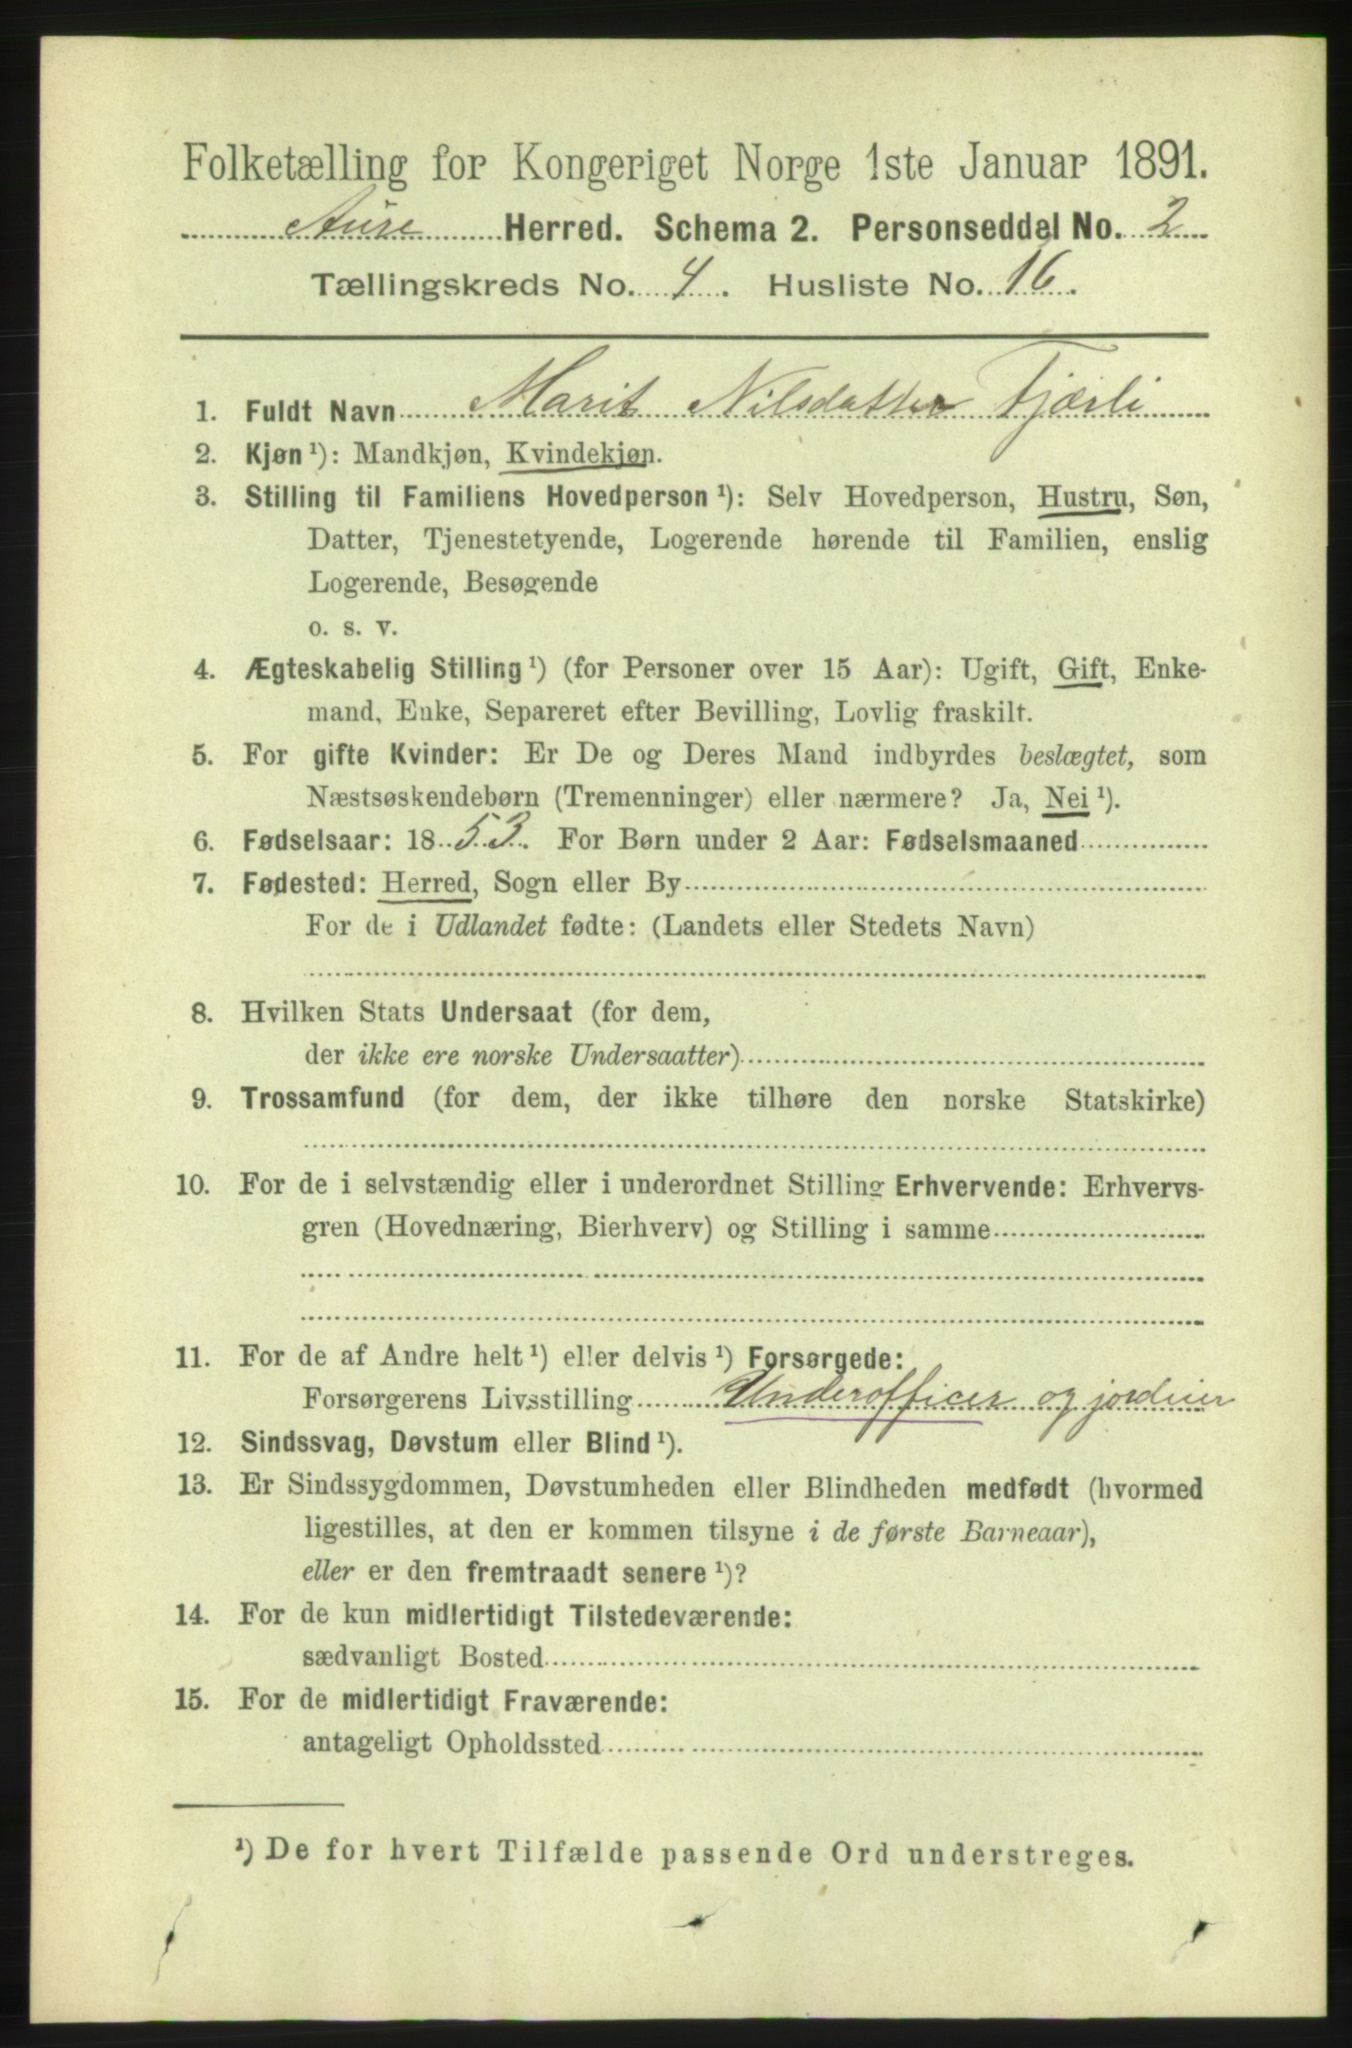 Folketælling for Kongeriget Norge 1ste Januar 1891.
Aure Herred. Schema 2. Personseddel No. 2
Tællingskreds No. 4. Husliste No. 16.
1. Fuldt Navn Marit Nilsdatter Fjærli
2. Kjøn ¹): Mandkjøn, Kvindekjøn.
3. Stilling til Familiens Hovedperson ¹): Selv Hovedperson, Hustru, Søn,
Datter, Tjenestetyende, Logerende hørende til Familien, enslig
Logerende, Besøgende
o. s. v.
4. Ægteskabelig Stilling ¹) (for Personer over 15 Aar): Ugift, Gift, Enke-
mand, Enke, Separeret efter Bevilling, Lovlig fraskilt.
5. For gifte Kvinder: Er De og Deres Mand indbyrdes beslægtet, som
Næstsøskendebørn (Tremenninger) eller nærmere? Ja, Nei ¹).
6. Fødselsaar: 1853. For Børn under 2 Aar: Fødselsmaaned
7. Fødested: Herred, Sogn eller By
For de i Udlandet fødte: (Landets eller Stedets Navn)
8. Hvilken Stats Undersaat (for dem,
der ikke ere norske Undersaatter)
9. Trossamfund (for dem, der ikke tilhøre den norske Statskirke)
10. For de i selvstændig eller i underordnet Stilling Erhvervende: Erhvervs-
gren (Hovednæring, Bierhverv) og Stilling i samme
11. For de af Andre helt ¹) eller delvis ¹) Forsørgede:
Forsørgerens Livsstilling Underofficer og jordeier
12. Sindssvag, Døvstum eller Blind ¹).
13. Er Sindssygdommen, Døvstumheden eller Blindheden medfødt (hvormed
ligestilles, at den er kommen tilsyne i de første Barneaar),
eller er den fremtraadt senere ¹)?
14. For de kun midlertidigt Tilstedeværende:
sædvanligt Bosted
15. For de midlertidigt Fraværende:
antageligt Opholdssted
¹) De for hvert Tilfælde passende Ord understreges.